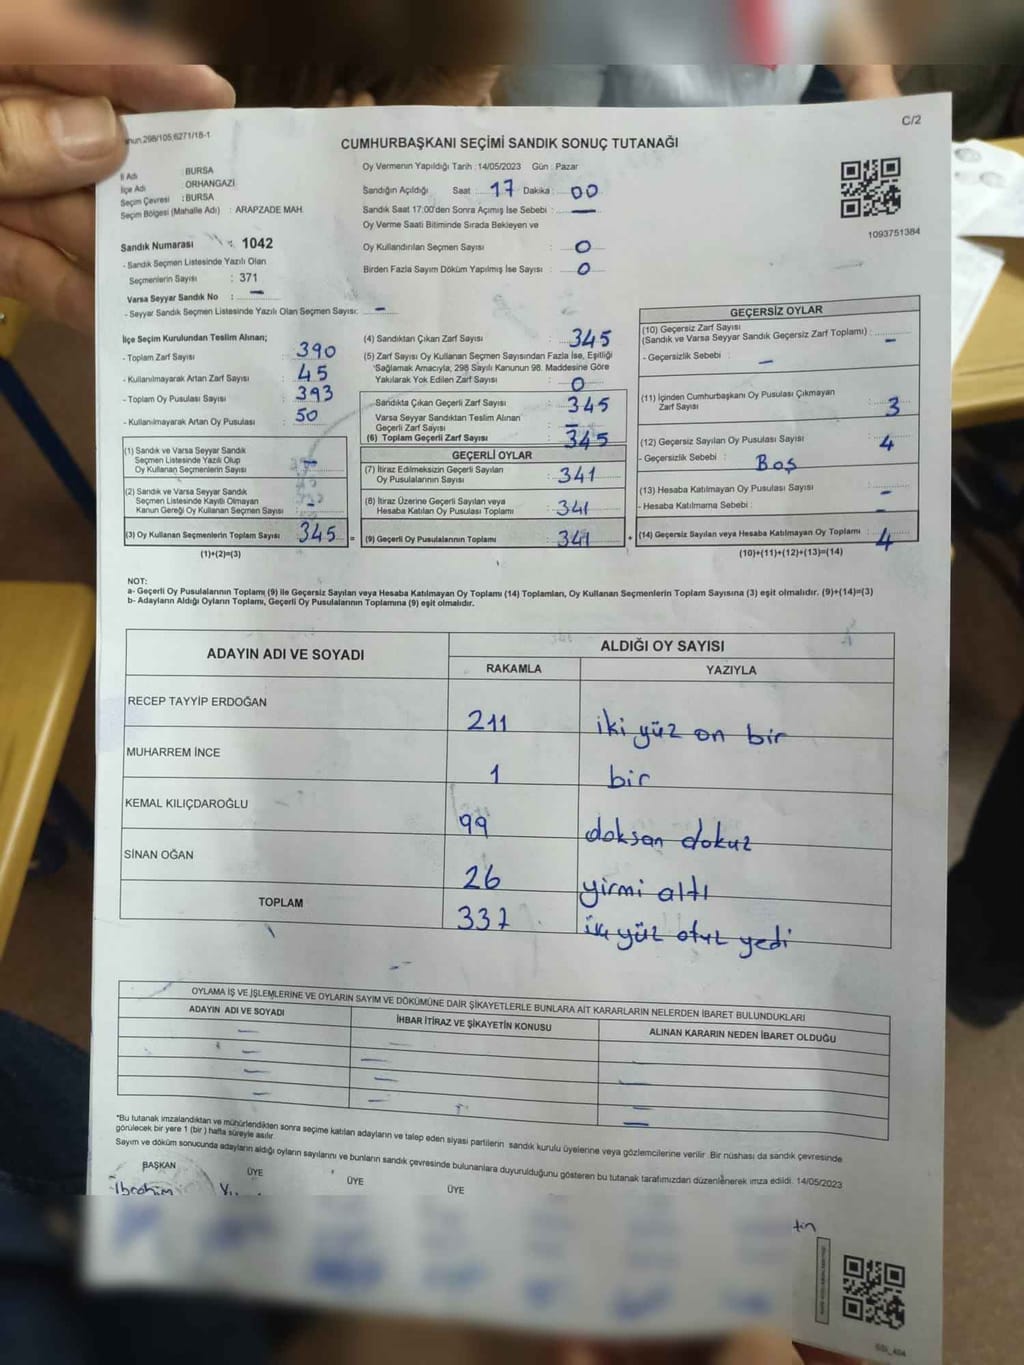 C/2
CUMHURBAŞKANI SEÇİMİ SANDIK SONUÇ TUTANAĞI
İl Adı : BURSA
İlçe Adı : ORHANGAZİ
Seçim Çevresi : BURSA
Seçim Bölgesi (Mahalle Adı) : ARAPZADE MAH.
Oy Vermenin Yapıldığı Tarih : 14/05/2023 Gün : Pazar
Sandığın Açıldığı Saat : 17 Dakika : 00
Sandık Saat 17:00'den Sonra Açılmış İse Sebebi : —
Oy Verme Saati Bitiminde Sırada Bekleyen ve
Oy Kullandırılan Seçmen Sayısı : 0
Birden Fazla Sayım Döküm Yapılmış İse Sayısı : 0
1093751384
Sandık Numarası : 1042
- Sandık Seçmen Listesinde Yazılı Olan
Seçmenlerin Sayısı : 371
Varsa Seyyar Sandık No : —
- Seyyar Sandık Seçmen Listesinde Yazılı Olan Seçmen Sayısı: —
İlçe Seçim Kurulundan Teslim Alınan;
- Toplam Zarf Sayısı : 390
- Kullanılmayarak Artan Zarf Sayısı : 45
- Toplam Oy Pusulası Sayısı : 393
- Kullanılmayarak Artan Oy Pusulası : 50
(1) Sandık ve Varsa Seyyar Sandık
Seçmen Listesinde Yazılı Olup
Oy Kullanan Seçmenlerin Sayısı : —
(2) Sandık ve Varsa Seyyar Sandık
Seçmen Listesinde Kayıtlı Olmayan
Kanun Gereği Oy Kullanan Seçmen Sayısı : -
(3) Oy Kullanan Seçmenlerin Toplam Sayısı : 345 =
(1)+(2)=(3)
(4) Sandıktan Çıkan Zarf Sayısı : 345
(5) Zarf Sayısı Oy Kullanan Seçmen Sayısından Fazla İse, Eşitliği
Sağlamak Amacıyla, 298 Sayılı Kanunun 98. Maddesine Göre
Yakılarak Yok Edilen Zarf Sayısı : 0
Sandıkta Çıkan Geçerli Zarf Sayısı : 345
Varsa Seyyar Sandıktan Teslim Alınan
Geçerli Zarf Sayısı : —
(6) Toplam Geçerli Zarf Sayısı : 345
GEÇERLİ OYLAR
(7) İtiraz Edilmeksizin Geçerli Sayılan
Oy Pusulalarının Sayısı : 341
(8) İtiraz Üzerine Geçerli Sayılan veya
Hesaba Katılan Oy Pusulası Toplamı : 341
(9) Geçerli Oy Pusulalarının Toplamı : 341 +
GEÇERSİZ OYLAR
(10) Geçersiz Zarf Sayısı
(Sandık ve Varsa Seyyar Sandık Geçersiz Zarf Toplamı) : —
- Geçersizlik Sebebi : —
(11) İçinden Cumhurbaşkanı Oy Pusulası Çıkmayan
Zarf Sayısı : 3
(12) Geçersiz Sayılan Oy Pusulası Sayısı : 4
- Geçersizlik Sebebi : Boş
(13) Hesaba Katılmayan Oy Pusulası Sayısı : -
- Hesaba Katılmama Sebebi : -
(14) Geçersiz Sayılan veya Hesaba Katılmayan Oy Toplamı : 4
(10)+(11)+(12)+(13)=(14)
NOT:
a- Geçerli Oy Pusulalarının Toplamı (9) ile Geçersiz Sayılan veya Hesaba Katılmayan Oy Toplamı (14) Toplamları, Oy Kullanan Seçmenlerin Toplam Sayısına (3) eşit olmalıdır. (9)+(14)=(3)
b- Adayların Aldığı Oyların Toplamı, Geçerli Oy Pusulalarının Toplamına (9) eşit olmalıdır.
ADAYIN ADI VE SOYADI ALDIĞI OY SAYISI
RAKAMLA YAZIYLA
RECEP TAYYİP ERDOĞAN 211 iki yüz on bir
MUHARREM İNCE 1 bir
KEMAL KILIÇDAROĞLU 99 doksan dokuz
SİNAN OĞAN 26 yirmi altı
TOPLAM 337 iki yüz otuz yedi
OYLAMA İŞ VE İŞLEMLERİNE VE OYLARIN SAYIM VE DÖKÜMÜNE DAİR ŞİKAYETLERLE BUNLARA AİT KARARLARIN NELERDEN İBARET BULUNDUKLARI
ADAYIN ADI VE SOYADI İHBAR İTİRAZ VE ŞİKAYETİN KONUSU ALINAN KARARIN NEDEN İBARET OLDUĞU
*Bu tutanak imzalandıktan ve mühürlendikten sonra seçime katılan adayların ve talep eden siyasi partilerin sandık kurulu üyelerine veya gözlemcilerine verilir. Bir nüshası da sandık çevresinde
görülecek bir yere 1 (bir) hafta süreyle asılır.
Sayım ve döküm sonucunda adayların aldığı oyların sayılarını ve bunların sandık çevresinde bulunanlara duyurulduğunu gösteren bu tutanak tarafımızdan düzenlenerek imza edildi. 14/05/2023
BAŞKAN ÜYE ÜYE ÜYE
İbrahim